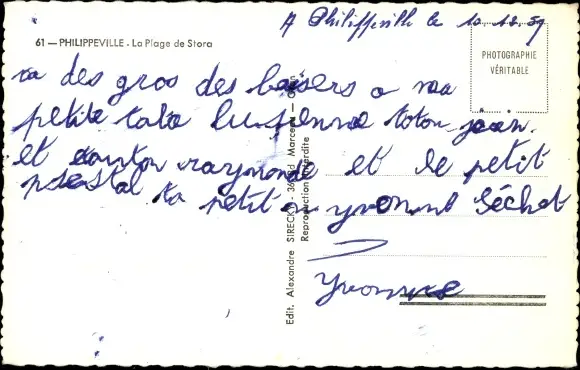 A Philippeville le 10.12.59
61 — PHILIPPEVILLE - La Plage de Stora
PHOTOGRAPHIE
VÉRITABLE
des gros des baisers a ma
petite tata lusienne toton jean.
et tonton raymonde et le petit
ta petit yvonne Séchet
Yvonne
Edit. Alexandre SIRECKY - Bd Marceau -
Reproduction Interdite